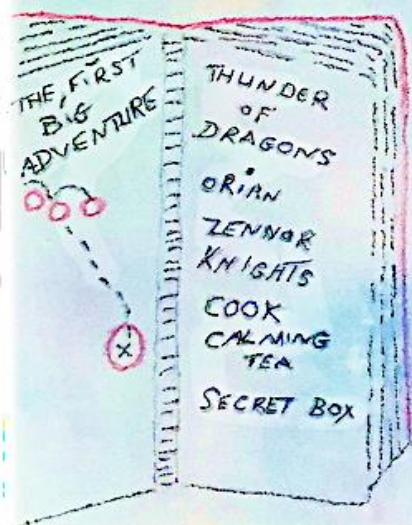 THE FIRST
BIG
ADVENTURE
X
THUNDER
OF
DRAGONS
ORIAN
ZENNOR
KNIGHTS
COOK
CALMING
TEA
SECRET BOX